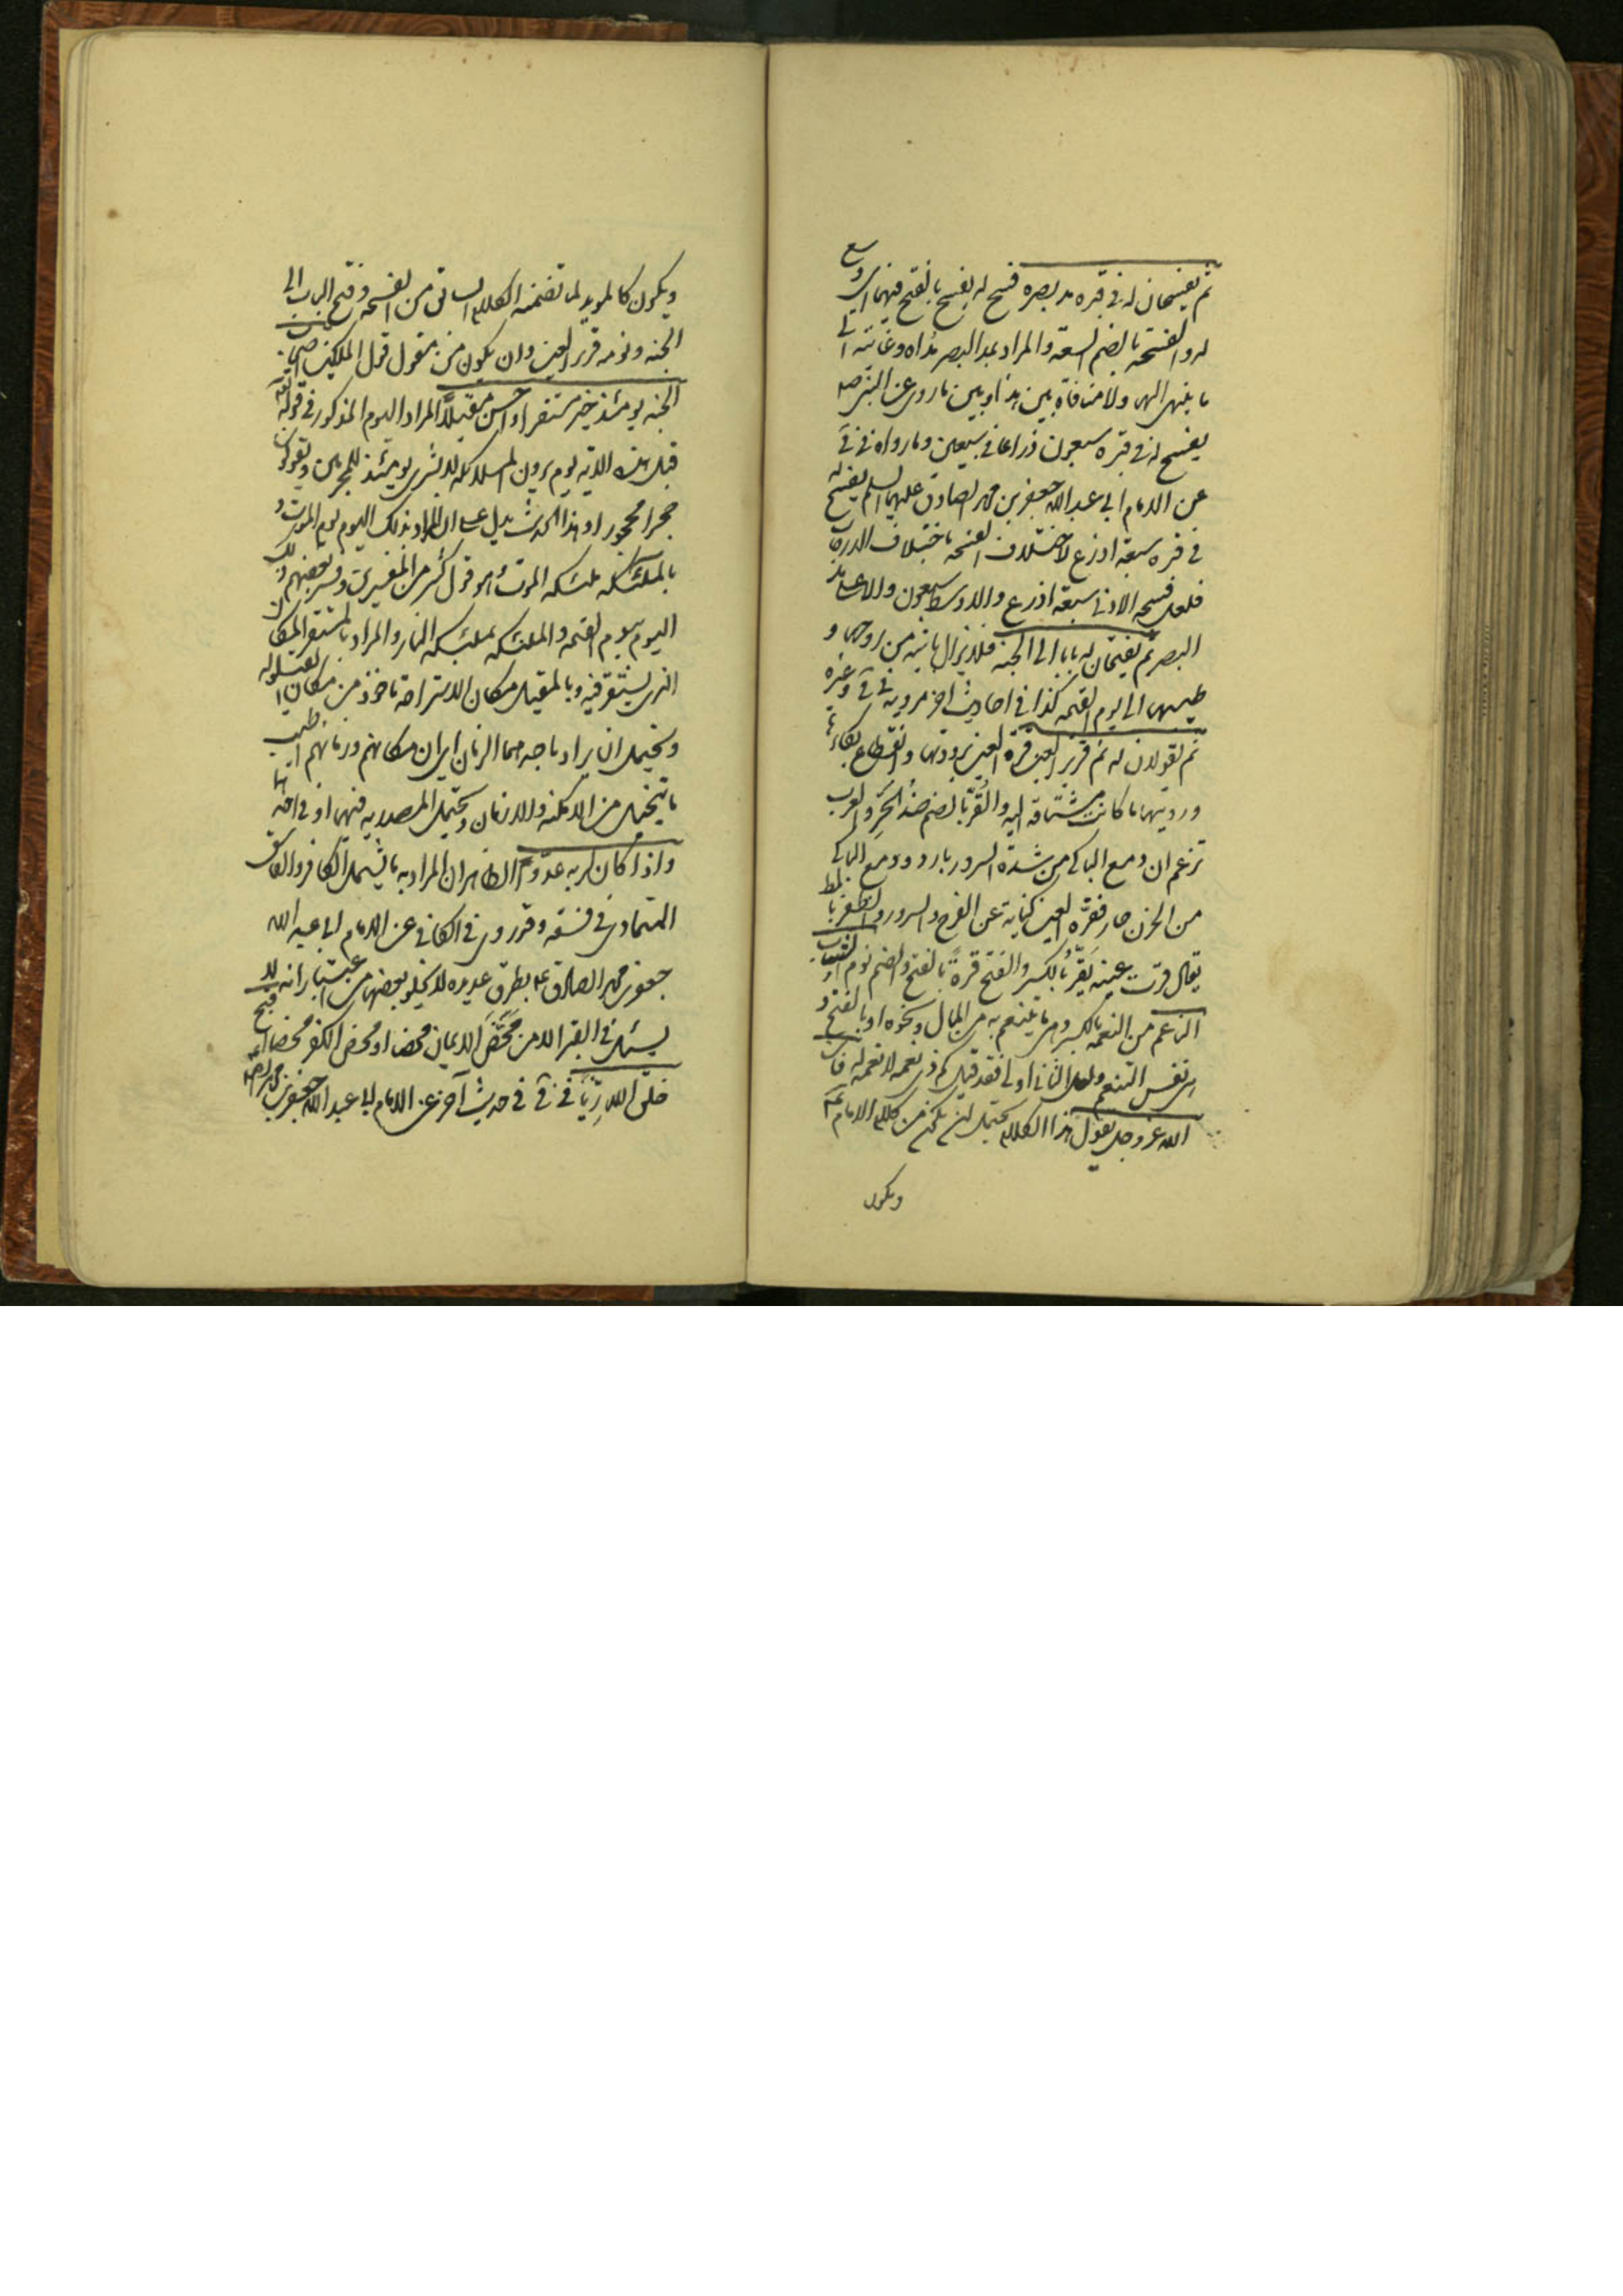 ثم يفسحان له في قبره مد بصره فسح له يفسح بالفتح فيهما اي وسع
له والفسحة بالضم السعة والمراد بمد البصر مداه وغايته التي
ما ينتهي اليها ولا منافاة بين هذا وبين ما روي عن النبي ص
يفسح له في قبره سبعون ذراعا في سبعين وما رواه في في
عن الامام ابي عبد الله جعفر بن محمد الصادق عليهما السلم يفسح له
في قبره سبعة اذرع لاختلاف الفسحة باختلاف الدرجات
فلعل فسحة الادنى سبعة اذرع والاوسط سبعون والاعلى مد
البصر ثم يفتحان له بابا الى الجنة فلا يزال ياتيه من روحها و
طيبها الى يوم القيمة كذا في احاديث اخر مروية في في وغيره
ثم يقولان له نم قرير العين قرة العين برودتها وانقطاع بكائها
ورويتها ما كانت مشتاقة اليه والقر بالضم ضد الحر والعرب
تزعم ان دمع الباكي من شدة السرور بارد ودمع الباكي
من الحزن حار فقرة العين كناية عن الفرح والسرور والظفر بالمط
يقال قرت عينه تقر بالكسر والفتح قرة بالفتح والضم نوم الشاب
الناعم من النعمة بالكسر وهي ما يتنعم به من المال ونحوه او بالفتح و
هي نفس التنعم ولعل الثاني اولى فقد قيل كم ذي نعمة لا نعمة له فان
الله عز وجل يقول هذا الكلام يحتمل ان يكون من كلام الامام ع
ويكون
ويكون كالمويد لما تضمنه الكلام السابق من الفسحة وفتح الباب الى
الجنة ونومه قرير العين وان يكون من مقول قول الملكين اصحاب
الجنة يومئذ خير مستقرا واحسن مقيلا المراد اليوم المذكور في قوله تعالى
قبل هذه الاية يوم يرون الملائكة لا بشرى يومئذ للمجرمين ويقولون
حجرا محجورا وهذا الحديث يدل على ان المراد بذلك اليوم يوم الموت و
بالملئكة ملئكة الموت وهو قول كثير من المفسرين وفسر بعضهم ذلك
اليوم بيوم القيمة والملئكة بملئكة النار والمراد بالمستقر المكان
الذي يستقر فيه وبالمقيل مكان الاستراحة ماخوذ من مكان القيلولة
ويحتمل ان يراد باحدهما الزمان اي ان مكانهم وزمانهم اطيب
ما يتخيل من الامكنة والازمان ويحتمل المصدرية فيهما او في احدهما
واذا كان لربه عدوا الظاهر ان المراد به ما يشمل الكافر والفاسق
المتمادي في فسقه وقد روي في الكافي عن الامام ابي عبد الله
جعفر بن محمد الصادق ع بطرق عديدة لا يخلو بعضها من اعتبار انه لا
يسئل في القبر الا من محض الايمان محضا او محض الكفر محضا اقبح
خلق الله زيا في في في حديث آخر عن الامام ابي عبد الله جعفر بن محمد الصادق ع